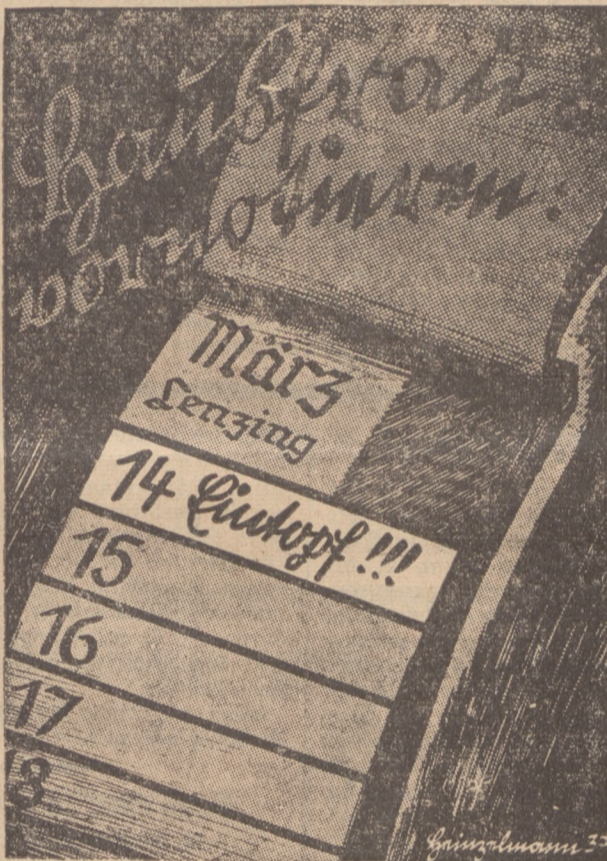 Hausfrau
vornotieren:
März
Lenzing
14 Eintopf!!!
15
16
17
18
Heinzelmann